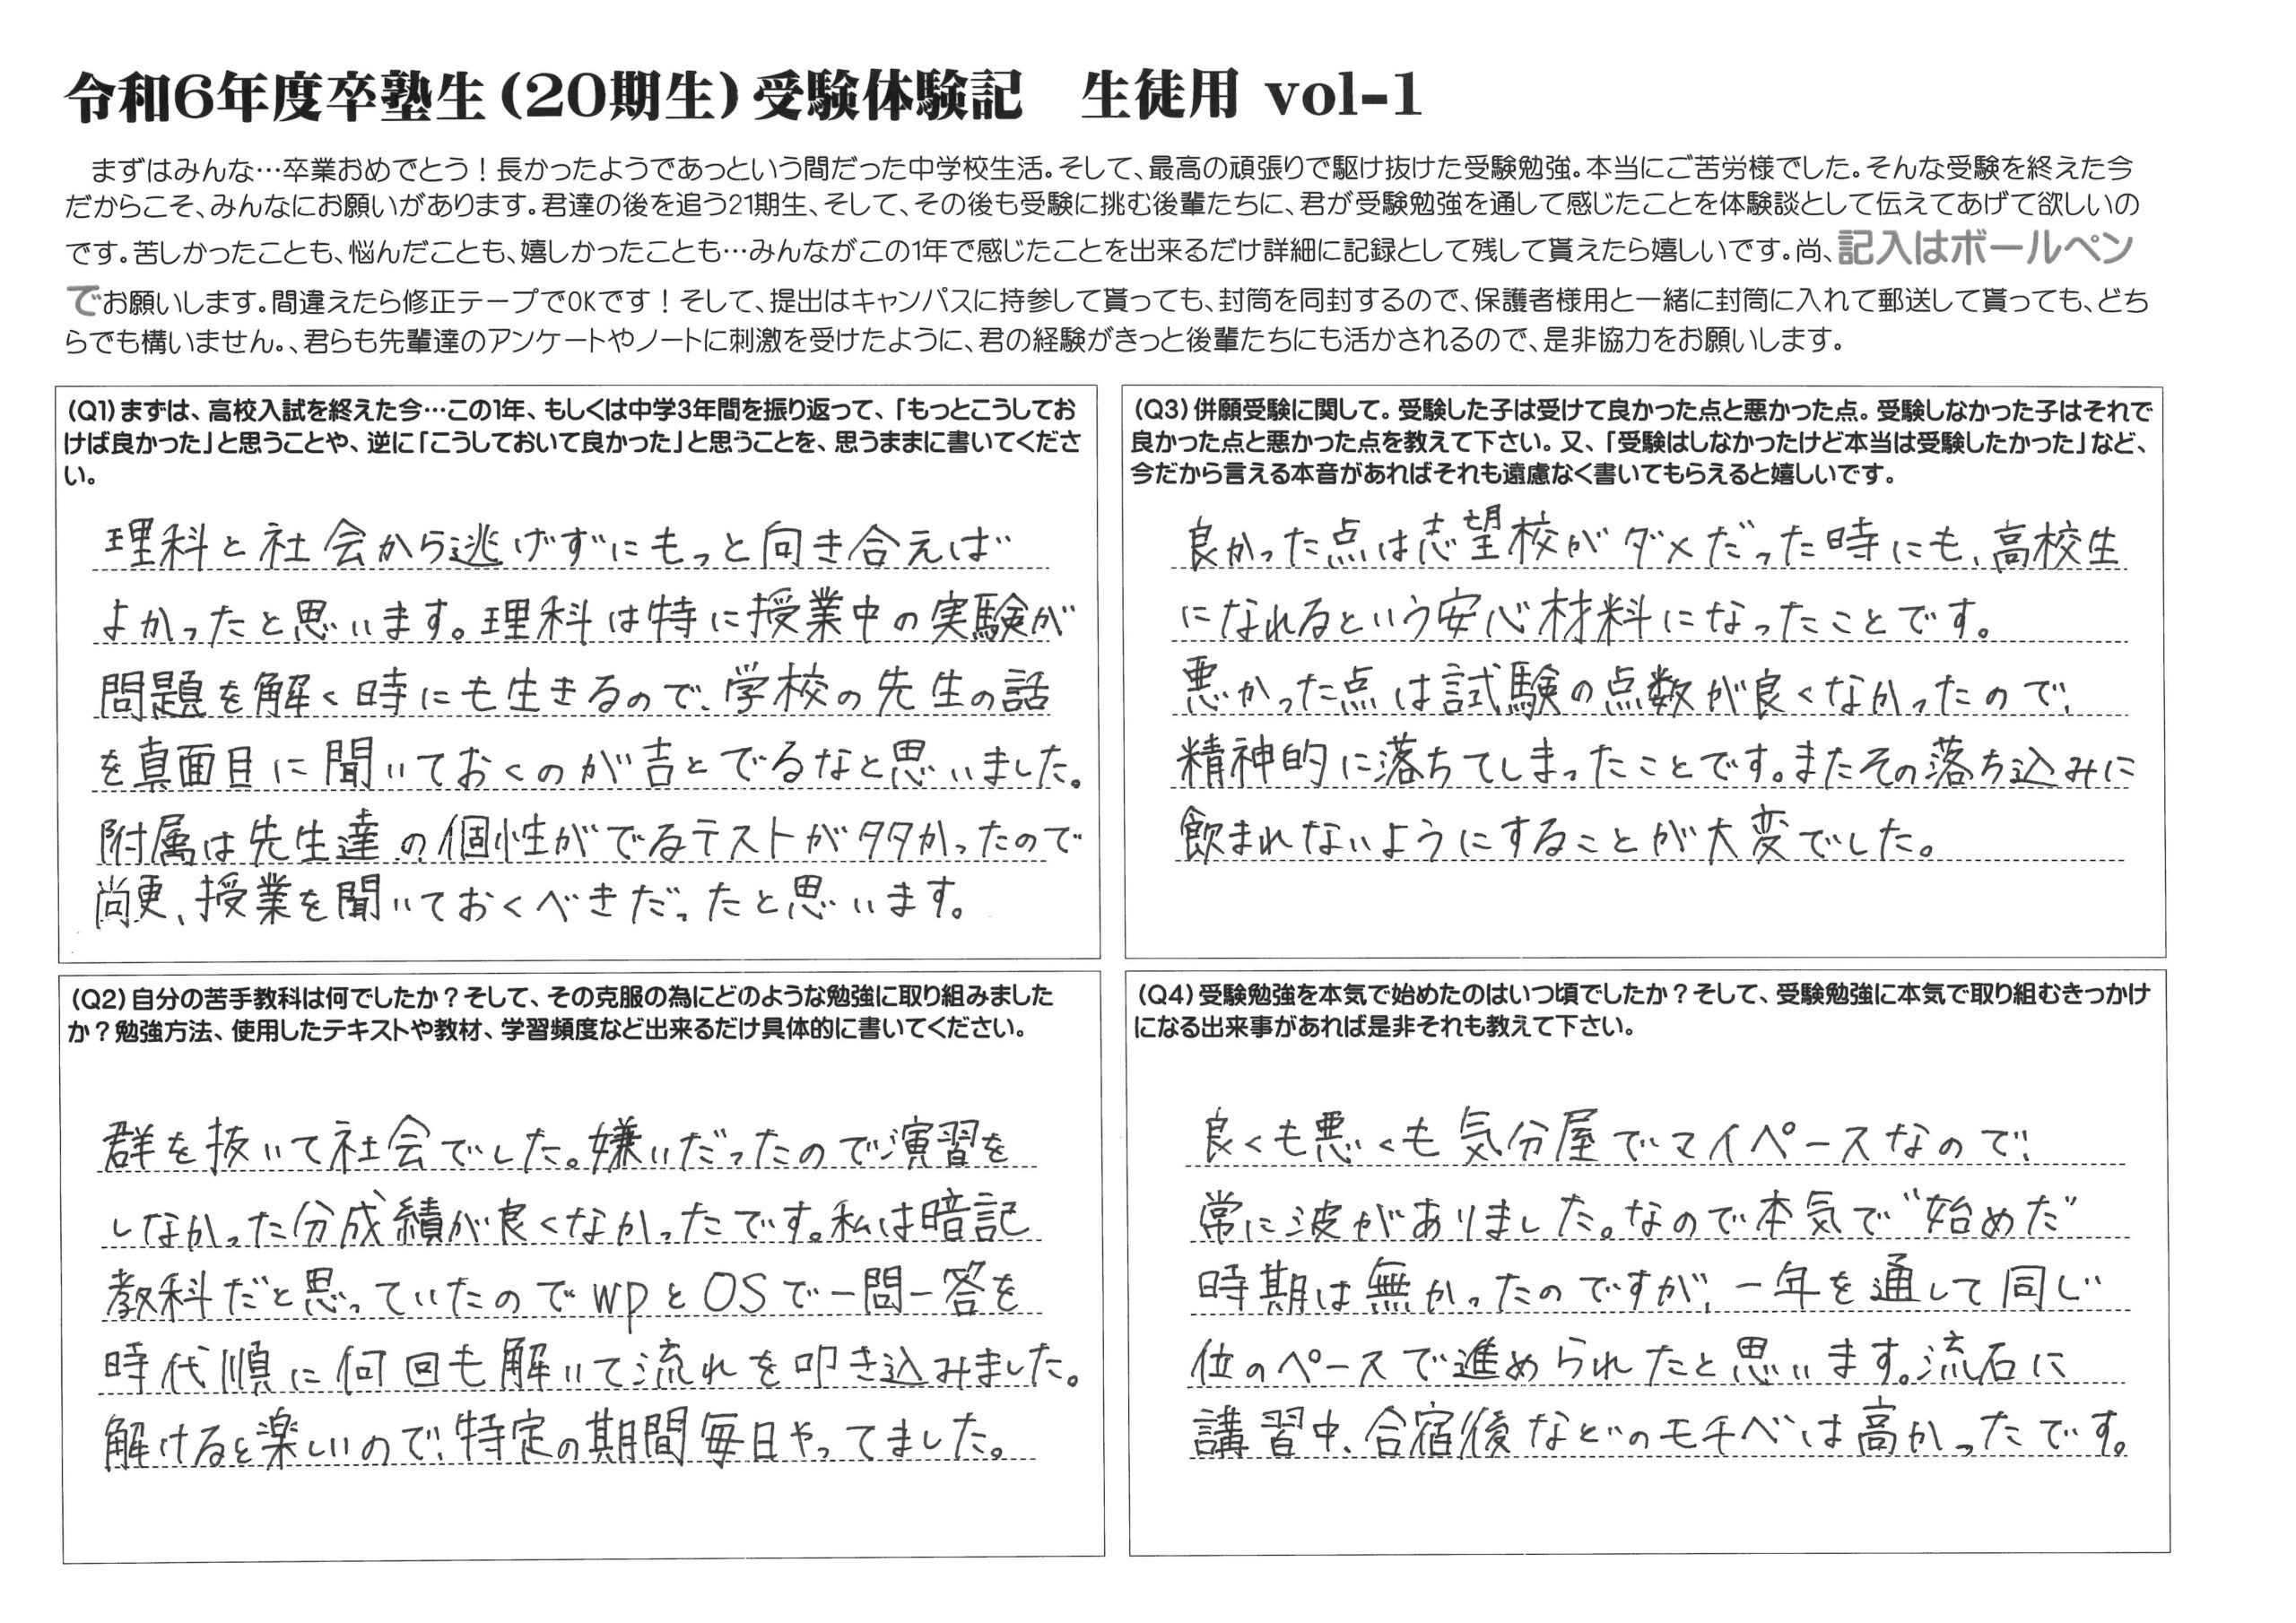 令和6年度卒塾生(20期生)受験体験記　生徒用 vol-1
まずはみんな…卒業おめでとう！長かったようであっという間だった中学校生活。そして、最高の頑張りで駆け抜けた受験勉強。本当にご苦労様でした。そんな受験を終えた今
だからこそ、みんなにお願いがあります。君達の後を追う21期生、そして、その後も受験に挑む後輩たちに、君が受験勉強を通して感じたことを体験談として伝えてあげて欲しいの
です。苦しかったことも、悩んだことも、嬉しかったことも…みんながこの1年で感じたことを出来るだけ詳細に記録として残して貰えたら嬉しいです。尚、記入はボールペン
でお願いします。間違えたら修正テープでOKです！そして、提出はキャンパスに持参して貰っても、封筒を同封するので、保護者様用と一緒に封筒に入れて郵送して貰っても、どち
らでも構いません。、君らも先輩達のアンケートやノートに刺激を受けたように、君の経験がきっと後輩たちにも活かされるので、是非協力をお願いします。
(Q1)まずは、高校入試を終えた今…この1年、もしくは中学3年間を振り返って、「もっとこうしてお
けば良かった」と思うことや、逆に「こうしておいて良かった」と思うことを、思うままに書いてくださ
い。
理科と社会から逃げずにもっと向き合えば
よかったと思います。理科は特に授業中の実験が
問題を解く時にも生きるので、学校の先生の話
を真面目に聞いておくのが吉とでるなと思いました。
附属は先生達の個性がでるテストが多かったので
尚更、授業を聞いておくべきだったと思います。
(Q2)自分の苦手教科は何でしたか？そして、その克服の為にどのような勉強に取り組みました
か？勉強方法、使用したテキストや教材、学習頻度など出来るだけ具体的に書いてください。
群を抜いて社会でした。嫌いだったので演習を
しなかった分成績が良くなかったです。私は暗記
教科だと思っていたのでwpとOSで一問一答を
時代順に何回も解いて流れを叩き込みました。
解けると楽しいので、特定の期間毎日やってました。
(Q3)併願受験に関して。受験した子は受けて良かった点と悪かった点。受験しなかった子はそれで
良かった点と悪かった点を教えて下さい。又、「受験はしなかったけど本当は受験したかった」など、
今だから言える本音があればそれも遠慮なく書いてもらえると嬉しいです。
良かった点は志望校がダメだった時にも、高校生
になれるという安心材料になったことです。
悪かった点は試験の点数が良くなかったので、
精神的に落ちてしまったことです。またその落ち込みに
飲まれないようにすることが大変でした。
(Q4)受験勉強を本気で始めたのはいつ頃でしたか？そして、受験勉強に本気で取り組むきっかけ
になる出来事があれば是非それも教えて下さい。
良くも悪くも気分屋でマイペースなので、
常に波がありました。なので本気で“始めた”
時期は無かったのですが、一年を通して同じ
位のペースで進められたと思います。流石に
講習中、合宿後などのモチベは高かったです。